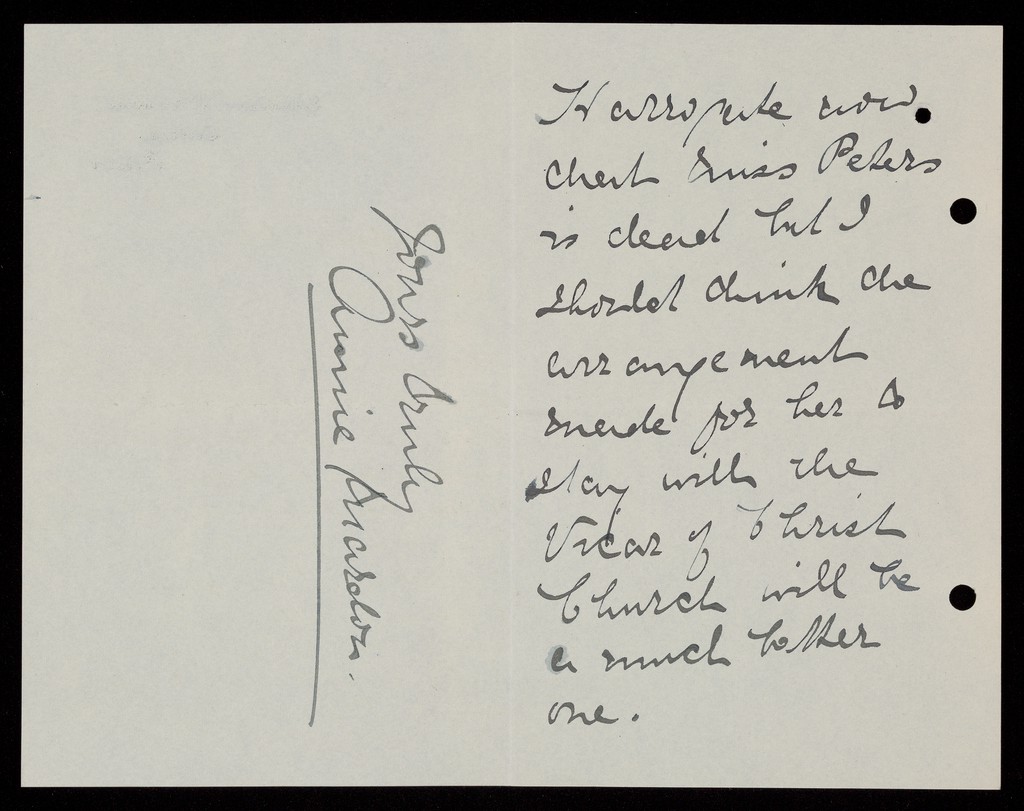 Harrogate now
that Miss Peters
is dead but I
should think the
arrangement
made for her to
stay with the
Vicar of Christ
Church will be
a much better
one.
Yours truly
Annie Mardon.